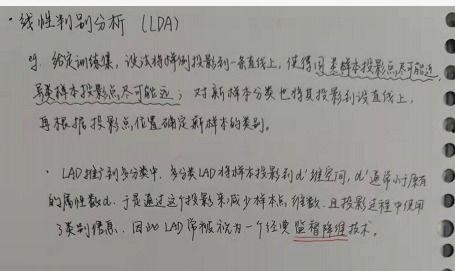 ·线性判别分析 (LDA)
給定训练集，设法将样例投影到一条直线上，使得同类样本投影点尽可能近，
异类样本投影点尽可能远；对新样本分类也将其投影到该直线上，
再根据投影点位置确定新样本的类别。
· LAD推广到多分类中，多分类LAD将样本投影到d'维空间，d'通常小于原有
的属性数d，于是通过这个投影来减少样本点维数，且投影过程中使用
了类别信息，因此LAD常被视为一个经典监督降维技术。